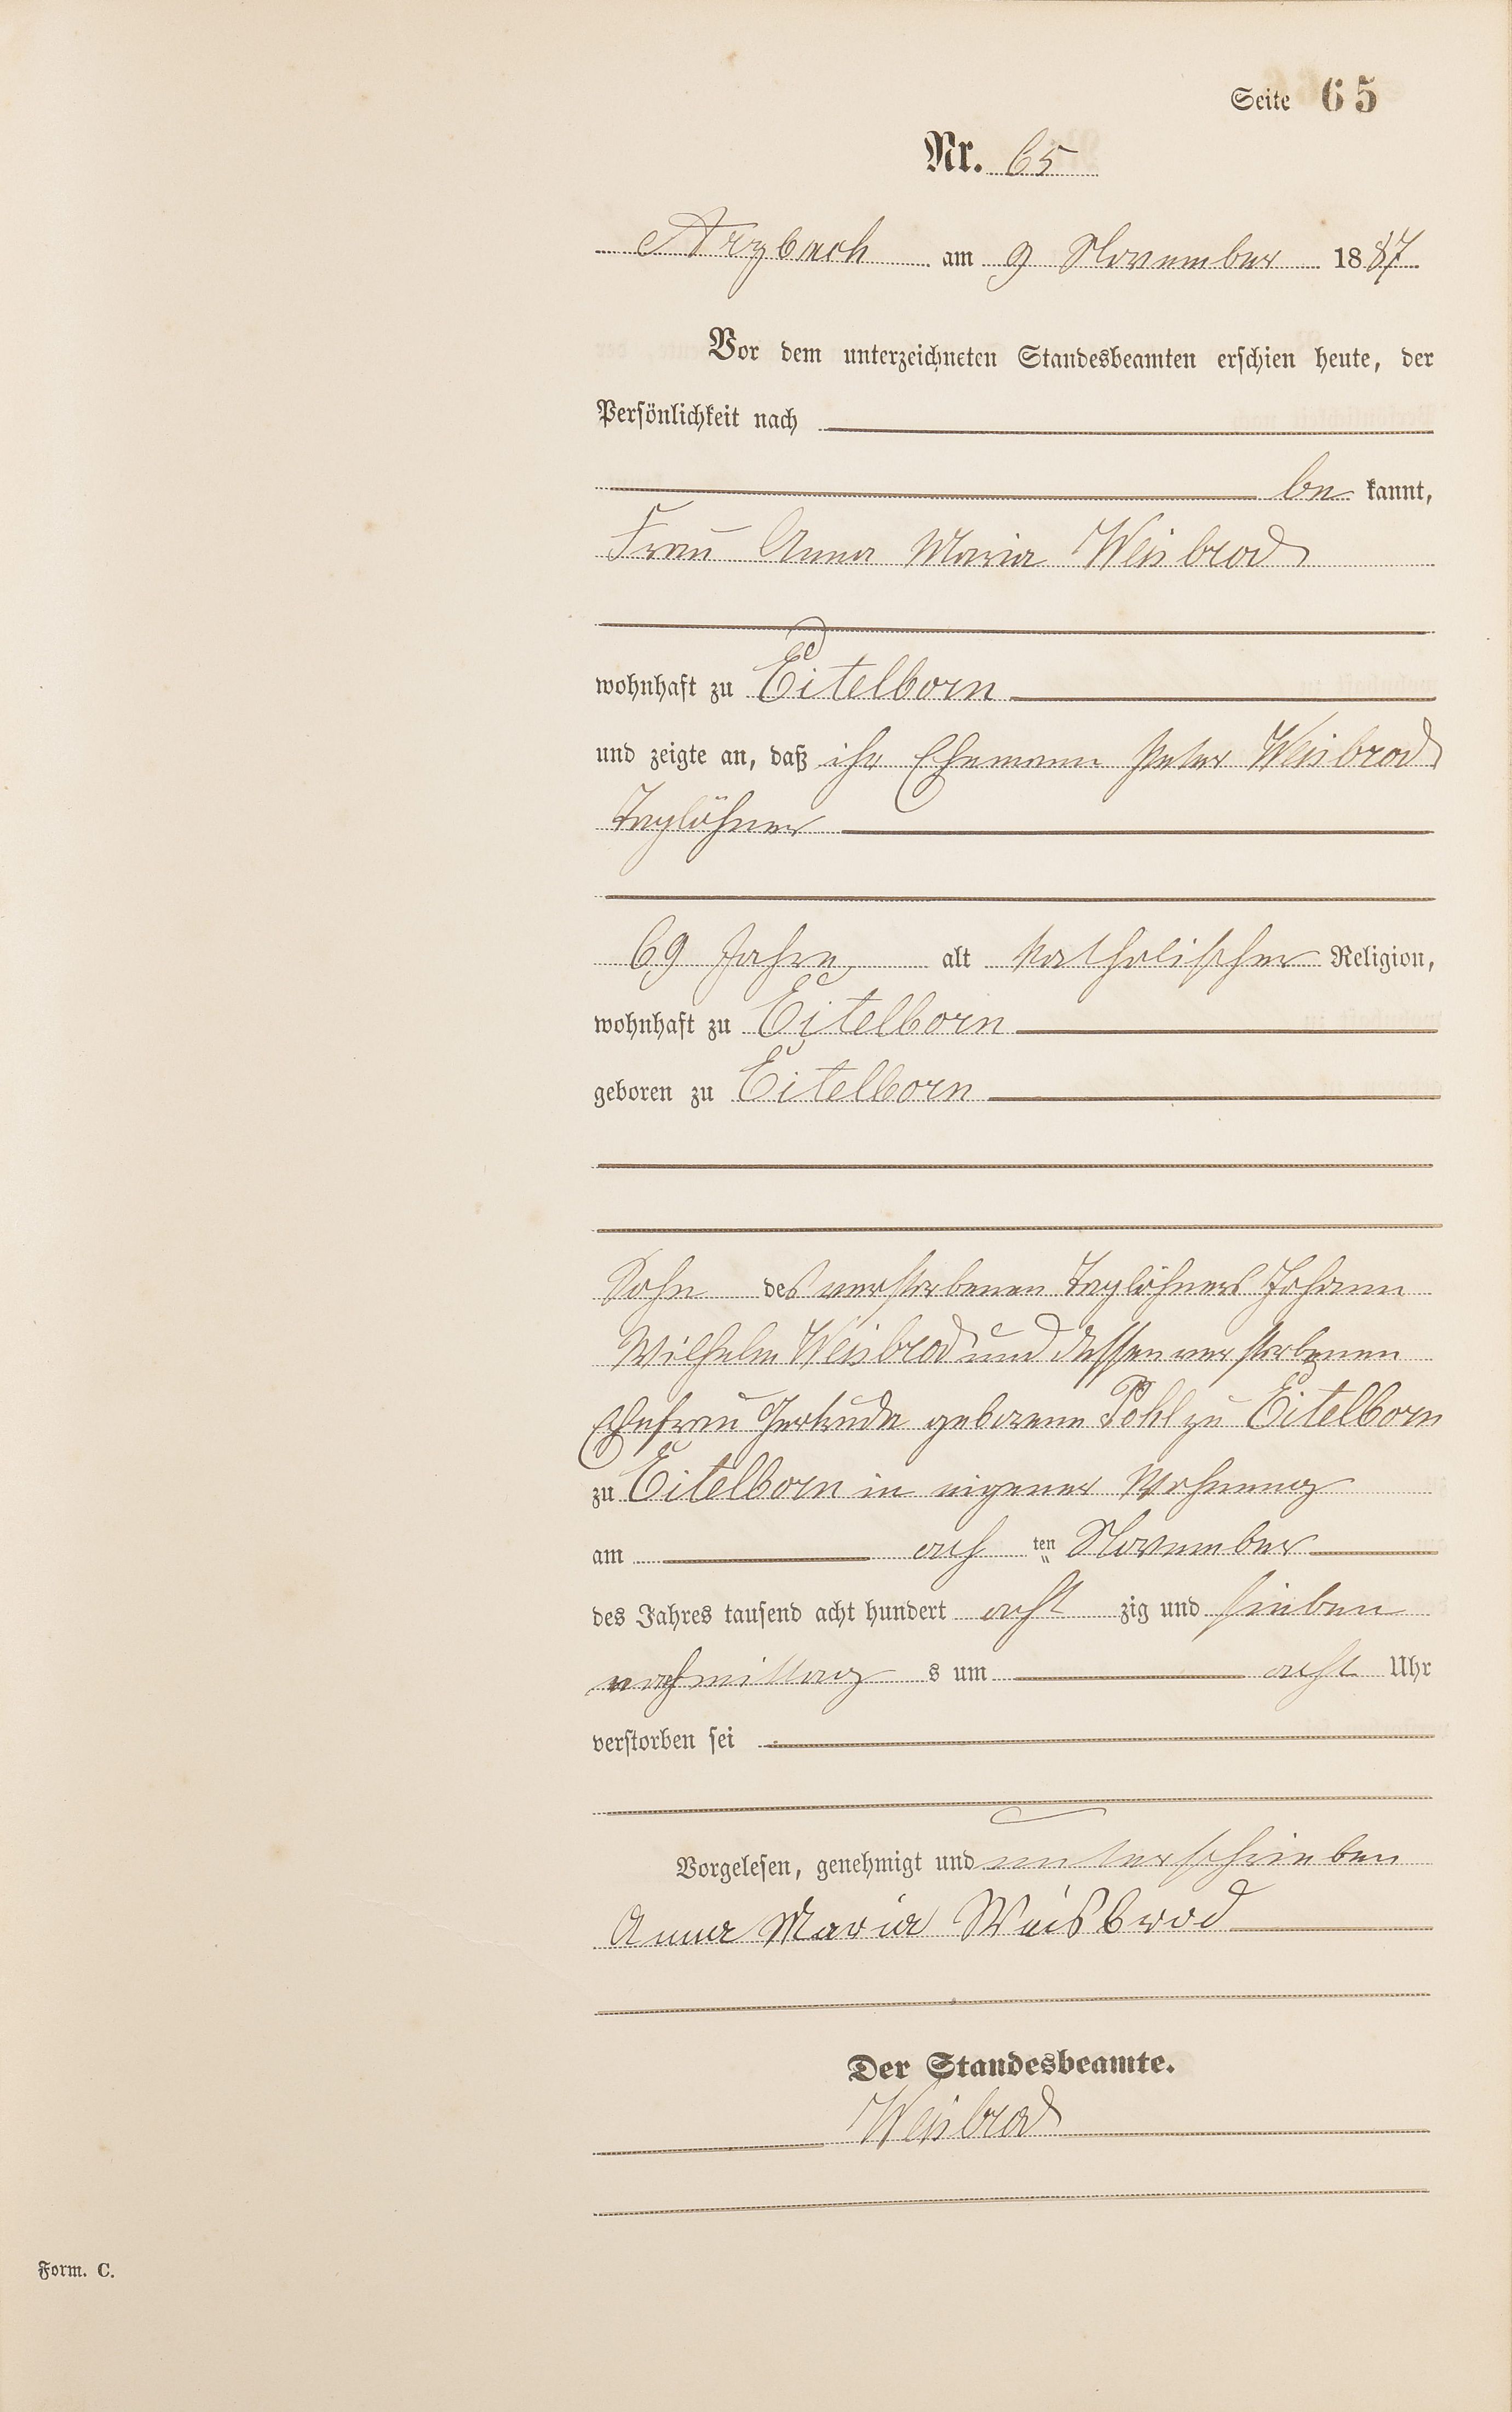 Seite 65
Nr. 65
Arzbach am 9 November 1887
Vor dem unterzeichneten Standesbeamten erschien heute, der
Persönlichkeit nach
be kannt,
Frau Anna Maria Weisbrod
wohnhaft zu Eitelborn
und zeigte an, daß ihr Ehemann Peter Weisbrod
Taglöhner
69 Jahre alt katholischer Religion,
wohnhaft zu Eitelborn
geboren zu Eitelborn
Sohn des verstorbenen Taglöhners Johann
Wilhelm Weisbrod und dessen verstorbenen
Ehefrau Gertruda geborene Pohl zu Eitelborn
zu Eitelborn in eigener Wohnung
am ach ten November
des Jahres tausend acht hundert acht zig und sieben
nachmittag s um acht Uhr
verstorben sei
Vorgelesen, genehmigt und unterschrieben
Anna Maria Weisbrod
Der Standesbeamte.
Weisbrod
Form. C.